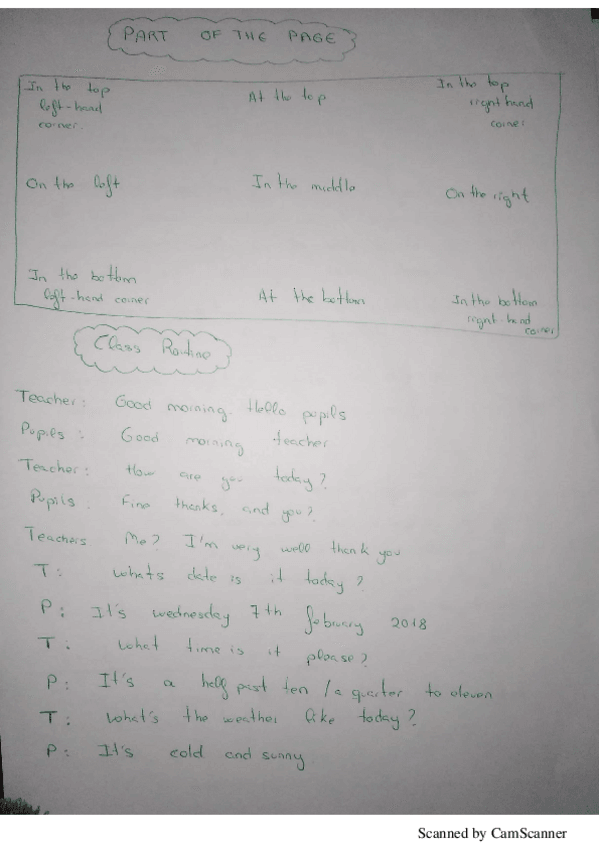 PART OF THE PAGE
In the top At the top In the top
left-hand right hand
corner. corner
On the left In the middle On the right
In the bottom At the bottom In the bottom
left-hand corner right-hand
corner
Class Routine
Teacher: Good morning. Hello pupils
Pupils: Good morning teacher
Teacher: How are you today?
Pupils. Fine thanks, and you?
Teachers Me? I'm very well thank you
T: whats date is it today?
P: It's wednesday 7th february 2018
T: what time is it please?
P: It's a half past ten /a quarter to eleven
T: what's the weather like today?
P: It's cold and sunny.
Scanned by CamScanner